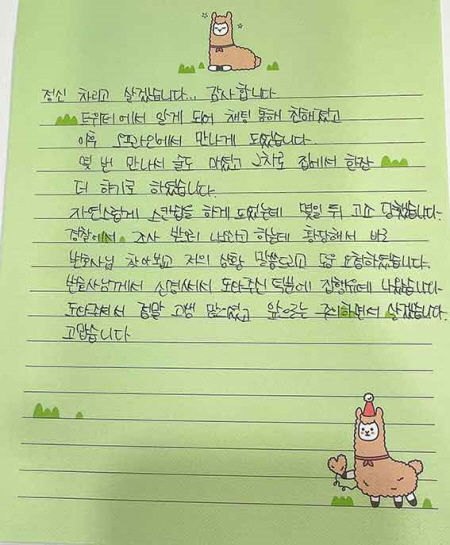 정신 차리고 살겠습니다... 감사합니다
트위터에서 알게 되어 채팅 통해 친해졌고
이후 오프라인에서 만나게 되었습니다.
몇 번 만나서 술도 마셨고 2차로 집에서 한잔
더 하기로 하였습니다.
자연스럽게 스킨쉽을 하게 되었는데 몇일 뒤 고소 당했습니다.
경찰에서 조사 받으러 나오라고 하는데 황당해서 바로
변호사님 찾아뵙고 저의 상황 말씀드리고 도움 요청하였습니다.
변호사님께서 신경써서 도와주신 덕분에 집행유예 나왔습니다.
도와주셔서 정말 고생 많으셨고 앞으로는 주의하면서 살겠습니다.
고맙습니다